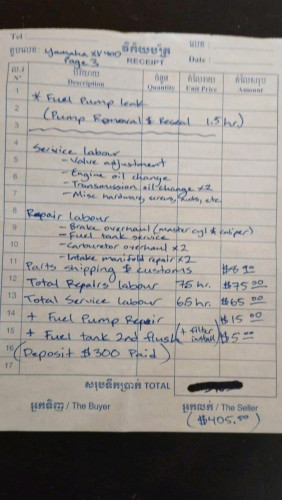 Tel
លេខ :
ឈ្មោះ : Yamaha XV400 វិក័យប័ត្រ
Page 3 RECEIPT Date :
ល.រ បរិយាយ ចំនួន តំលៃរាយ តំលៃសរុប
Nº Description Quantity Unit Price Amount
1 * Fuel Pump leak
2 (Pump Removal & Reseal 1.5 hr.)
3
4 Service labour
5 - Valve adjustment
6 - Engine oil change
- Transmission oil change x2
7 - Misc hardware, screws, nuts, etc
8 Repair labour
9 - Brake overhaul (master cyl & caliper)
- Fuel tank service
10 - Carburator overhaul x2
- Intake manifold repair x2
11 Parts shipping & customs
12 Total Repairs labour 75 hr. $75.00
13 Total Service labour 65 hr. $65.00
14 + Fuel Pump Repair $15.00
15 + Fuel tank 2nd flush (+ filter install) $5.00
16 (Deposit $300 Paid)
17
សរុបទឹកប្រាក់ TOTAL
អ្នកទិញ / The Buyer អ្នកលក់ / The Seller
($405.50)